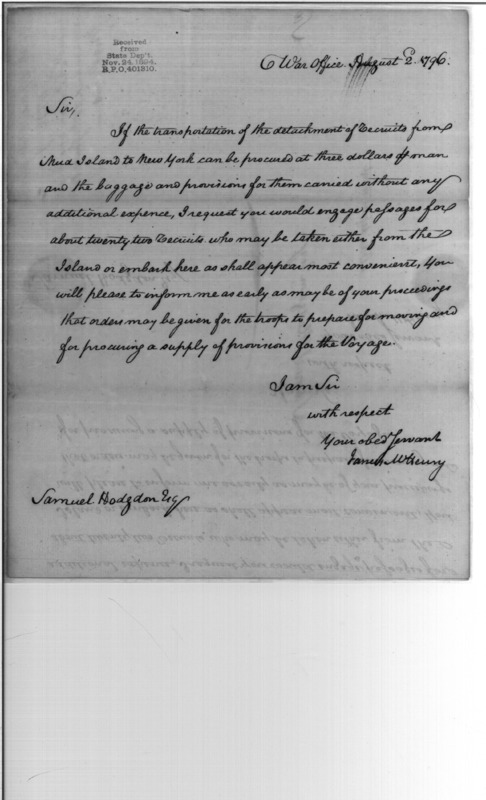 Received
from
State Dep't.
Nov. 24, 1894.
R.P.O. 401310.
War Office August 2. 1796.
Sir,
If the transportation of the detachment of Recruits from
Mud Island to New York can be procured at three dollars ⅌ man
and the baggage and provisions for them carried without any
additional expence, I request you would engage passages for
about twenty two Recruits who may be taken either from the
Island or embark here as shall appear most convenient, You
will please to inform me as early as may be of your proceedings
that orders may be given for the troops to prepare for moving and
for procuring a supply of provisions for the Voyage.
I am Sir
with respect
Your obed Servant
James McHenry
Samuel Hodgdon Esq